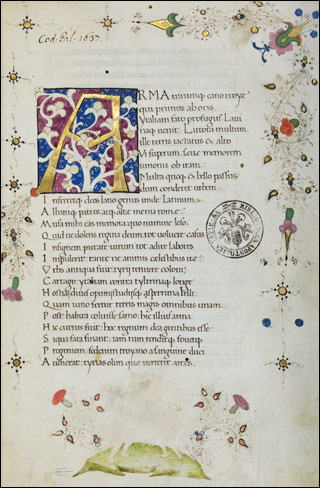 Cod. Pal. 1632.
ARMA uirumq; cano troye
qui primus ab oris
Ytaliam fato profugus Laui
naq; uenit. Littora multum
ille terris iactatus et alto
Vi superum seue memorem
iunonis ob iram.
Multa quoq; et bello passus
dum conderet urbem
Inferretq; deos latio genus unde Latinum
Albaniq; patres atq; alte menia rome.
Musa mihi causas memora quo numine leso.
Quidue dolens regina deum tot uoluere casus
Insignem pietate uirum tot adire labores
Impulerit. tante ne animis celestibus ire
Vrbs antiqua fuit tyrij tenuere coloni;
Cartago ytaliam contra tyberinaq; longe
Hostia diues opum studijsq; asperrima belli.
Quam iuno fertur terris magis omnibus unam.
Post habita coluisse samo; hic illius arma
Hic currus fuit. hoc regnum dea gentibus esse
Si qua fata sinant: iam tum tenditq; fouetq;
Progeniem sed enim troyano a sanguine duci
Audierat tyrias olim que uerteret arces.